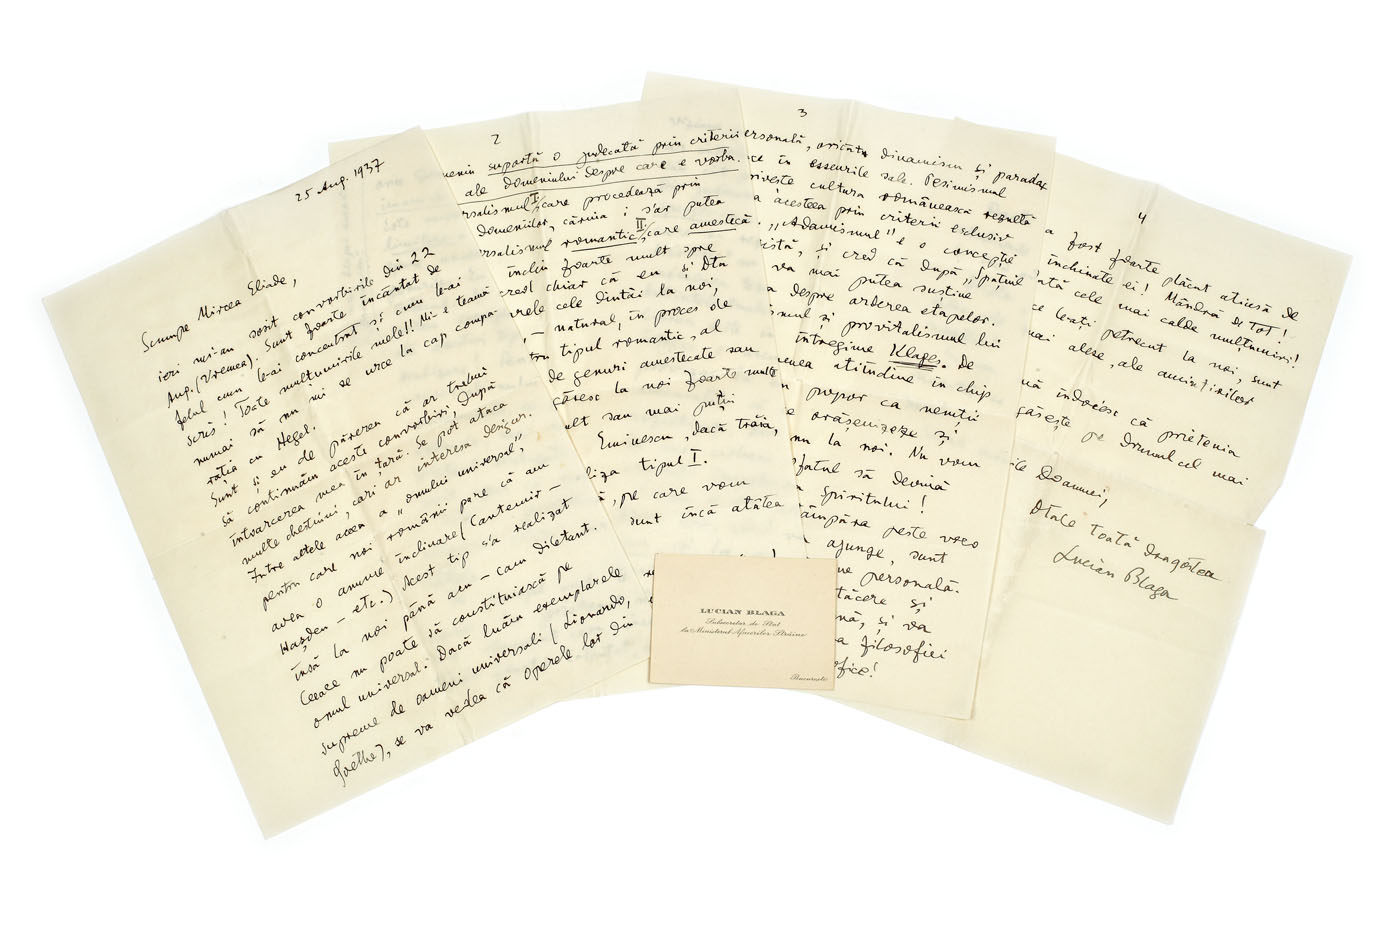 25 Aug. 1937
Scumpe Mircea Eliade,
ieri mi-au sosit convorbirile din 22
Aug. (Vremea). Sunt foarte încântat de
felul cum le-ai concentrat și cum le-ai
scris! Toate mulțumirile mele!! Mi-e teamă
numai să nu mi se urce la cap compa-
rația cu Hegel.
Sunt și eu de părerea că ar trebui
să continuăm aceste convorbiri, după
întoarcerea mea în țară. Se pot ataca
multe chestiuni, cari ar interesa desigur.
Între altele aceea a „omului universal",
pentru care noi românii pare că am
avea o anume înclinare (Cantemir –
Hașdeu – etc.) Acest tip s'a realizat
însă la noi până acu – cam diletant.
Ceeace nu poate să constituiască pe
omul universal. Dacă luăm exemplarele
supreme de oameni universali (Lionardo,
Goethe), se va vedea că operele lor din
2
suportă o judecată prin criterii
ale domeniului despre care e vorba.
I, care procedează prin
domeniilor, căruia i s'ar putea
romantic II, care amestecă
înclin foarte mult spre
cred chiar că eu și Dta
cele dintâi la noi,
– natural, în proces de
tipul romantic, al
de genuri amestecate sau
la noi foarte multe
sau mai puțin
Eminescu, dacă trăia,
tipul I.
, pe care vom
sunt încă atâtea
3
dinamism și paradox
în esseurile sale. Pesimismul
cultura românească rezultă
acesteea prin criterii exclusiv
„Adamismul" e o concepție
, și cred că după „Spațiul
va mai putea susține
despre arderea etapelor.
și provitalismul lui
întregime Klages. De
atitudine în chip
popor ca nemții
orășenizeze și
la noi. Nu vom
să devină
spiritului!
peste vreo
ajunge, sunt
personală.
tăcere și
, și va
filosofiei
4
a fost foarte plăcut aticusă de
închinate ei! Mândră de tot!
cele mai calde mulțumiri!
petrecut la noi, sunt
alese, ale amintirilor
îndoiesc că prietenia
pe drumul cel mai
Doamnei,
Dtale toată dragostea
Lucian Blaga
LUCIAN BLAGA
Subsecretar de Stat
la Ministerul Afacerilor Străine
București